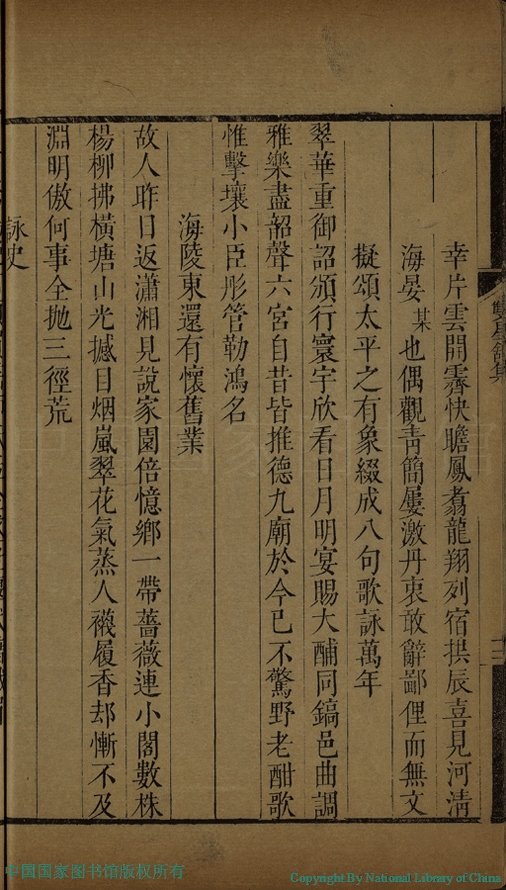 幸片雲開霽快瞻鳳翥龍翔列宿拱辰喜見河清
海晏某也偶觀青簡屢激丹衷敢辭鄙俚而無文
擬頌太平之有象綴成八句歌詠萬年
翠華重御詔頒行寰宇欣看日月明宴賜大酺同鎬邑曲調
雅樂盡韶聲六宮自昔皆推德九廟於今已不驚野老酣歌
惟擊壤小臣彤管勒鴻名
海陵東還有懷舊業
故人昨日返瀟湘見說家園倍憶鄉一帶薔薇連小閣數株
楊柳拂橫塘山光撼目烟嵐翠花氣蒸人襪履香却慚不及
淵明傲何事全拋三徑荒
詠史
中国国家图书馆版权所有
Copyright By National Library of China